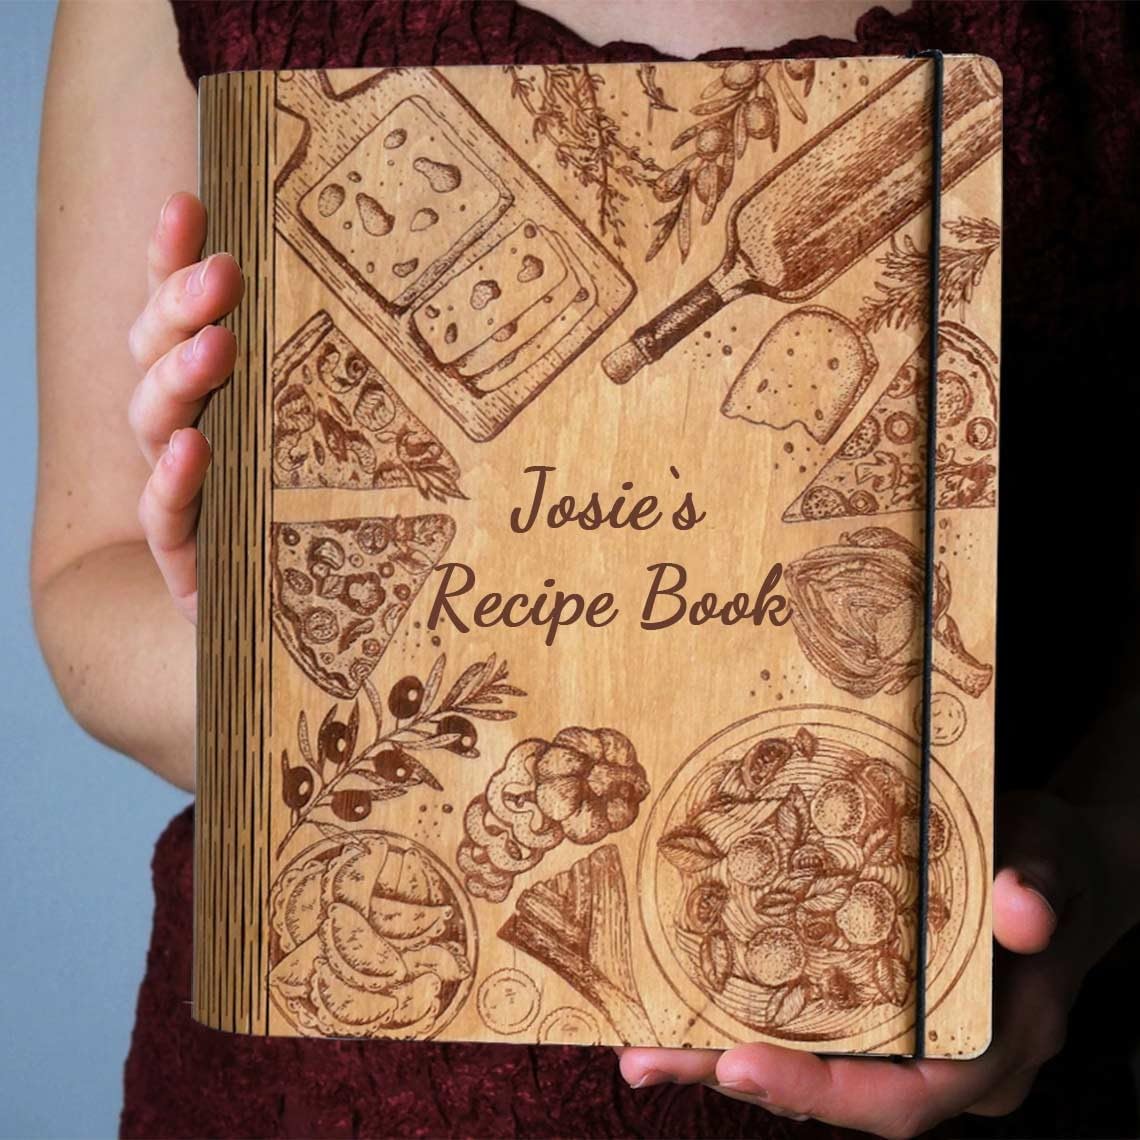 Josie`s
Recipe Book